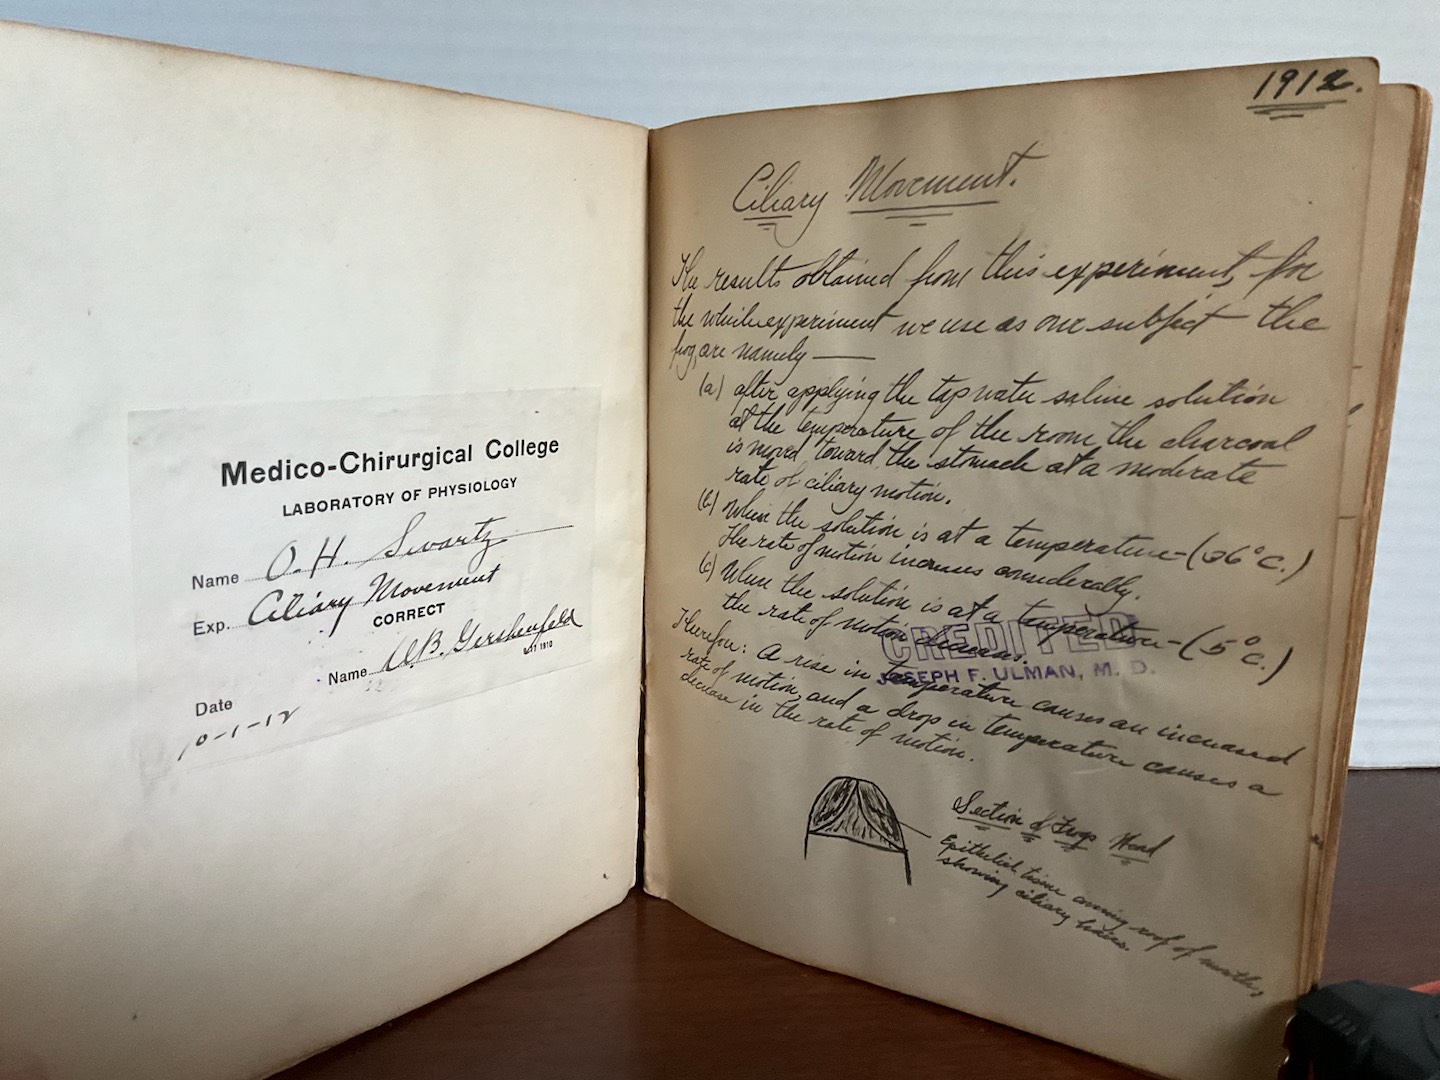 Medico-Chirurgical College
LABORATORY OF PHYSIOLOGY
Name O. H. Swartz
Exp. Ciliary Movement
CORRECT
Name A.B. Gershenfeld
Date
10-1-12
1912.
Ciliary Movement.
The results obtained from this experiment, for
the while experiment we use as our subject the
frog, are namely —
(a) after applying the tap water saline solution
at the temperature of the room, the charcoal
is moved toward the stomach at a moderate
rate of ciliary motion.
(b) When the solution is at a temperature – (36°C.)
The rate of motion increases considerably.
(c) When the solution is at a temperature – (5°C.)
the rate of motion decreases.
CREDITED
JOSEPH F. ULMAN, M. D.
Therefore: A rise in temperature causes an increased
rate of motion, and a drop in temperature causes a
decrease in the rate of motion.
Section of Frogs Head
Epithelial tissue roof of mouth,
showing ciliary hairs.